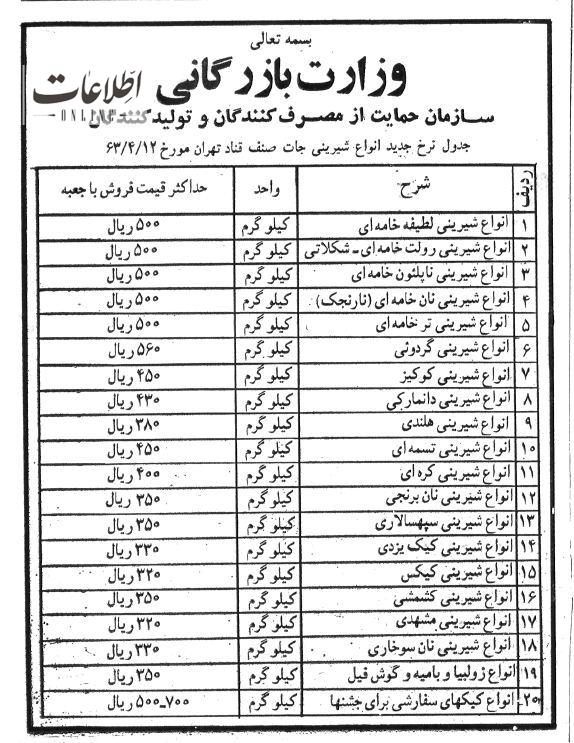 بسمه تعالی
وزارت بازرگانی
اطلاعات
سازمان حمایت از مصرف کنندگان و تولید کنندگان
جدول نرخ جدید انواع شیرینی جات صنف قناد تهران مورخ ۶۳/۴/۱۲
ردیف شرح واحد حداکثر قیمت فروش با جعبه
۱ انواع شیرینی لطیفه خامه ای کیلو گرم ۵۰۰ ریال
۲ انواع شیرینی رولت خامه ای ـ شکلاتی کیلو گرم ۵۰۰ ریال
۳ انواع شیرینی ناپلئون خامه ای کیلو گرم ۵۰۰ ریال
۴ انواع شیرینی نان خامه ای (نارنجک) کیلو گرم ۵۰۰ ریال
۵ انواع شیرینی تر خامه ای کیلو گرم ۵۰۰ ریال
۶ انواع شیرینی گردوئی کیلو گرم ۵۶۰ ریال
۷ انواع شیرینی کوکیز کیلو گرم ۴۵۰ ریال
۸ انواع شیرینی دانمارکی کیلو گرم ۴۳۰ ریال
۹ انواع شیرینی هلندی کیلو گرم ۳۸۰ ریال
۱۰ انواع شیرینی تسمه ای کیلو گرم ۴۵۰ ریال
۱۱ انواع شیرینی کره ای کیلو گرم ۴۰۰ ریال
۱۲ انواع شیرینی نان برنجی کیلو گرم ۳۵۰ ریال
۱۳ انواع شیرینی سپهسالاری کیلو گرم ۳۵۰ ریال
۱۴ انواع شیرینی کیک یزدی کیلو گرم ۳۳۰ ریال
۱۵ انواع شیرینی کیکس کیلو گرم ۳۲۰ ریال
۱۶ انواع شیرینی کشمشی کیلو گرم ۳۵۰ ریال
۱۷ انواع شیرینی مشهدی کیلو گرم ۳۲۰ ریال
۱۸ انواع شیرینی نان سوخاری کیلو گرم ۳۳۰ ریال
۱۹ انواع زولبیا و بامیه و گوش فیل کیلو گرم ۳۵۰ ریال
۲۰ انواع کیکهای سفارشی برای جشنها کیلو گرم ۷۰۰ـ۵۰۰ ریال